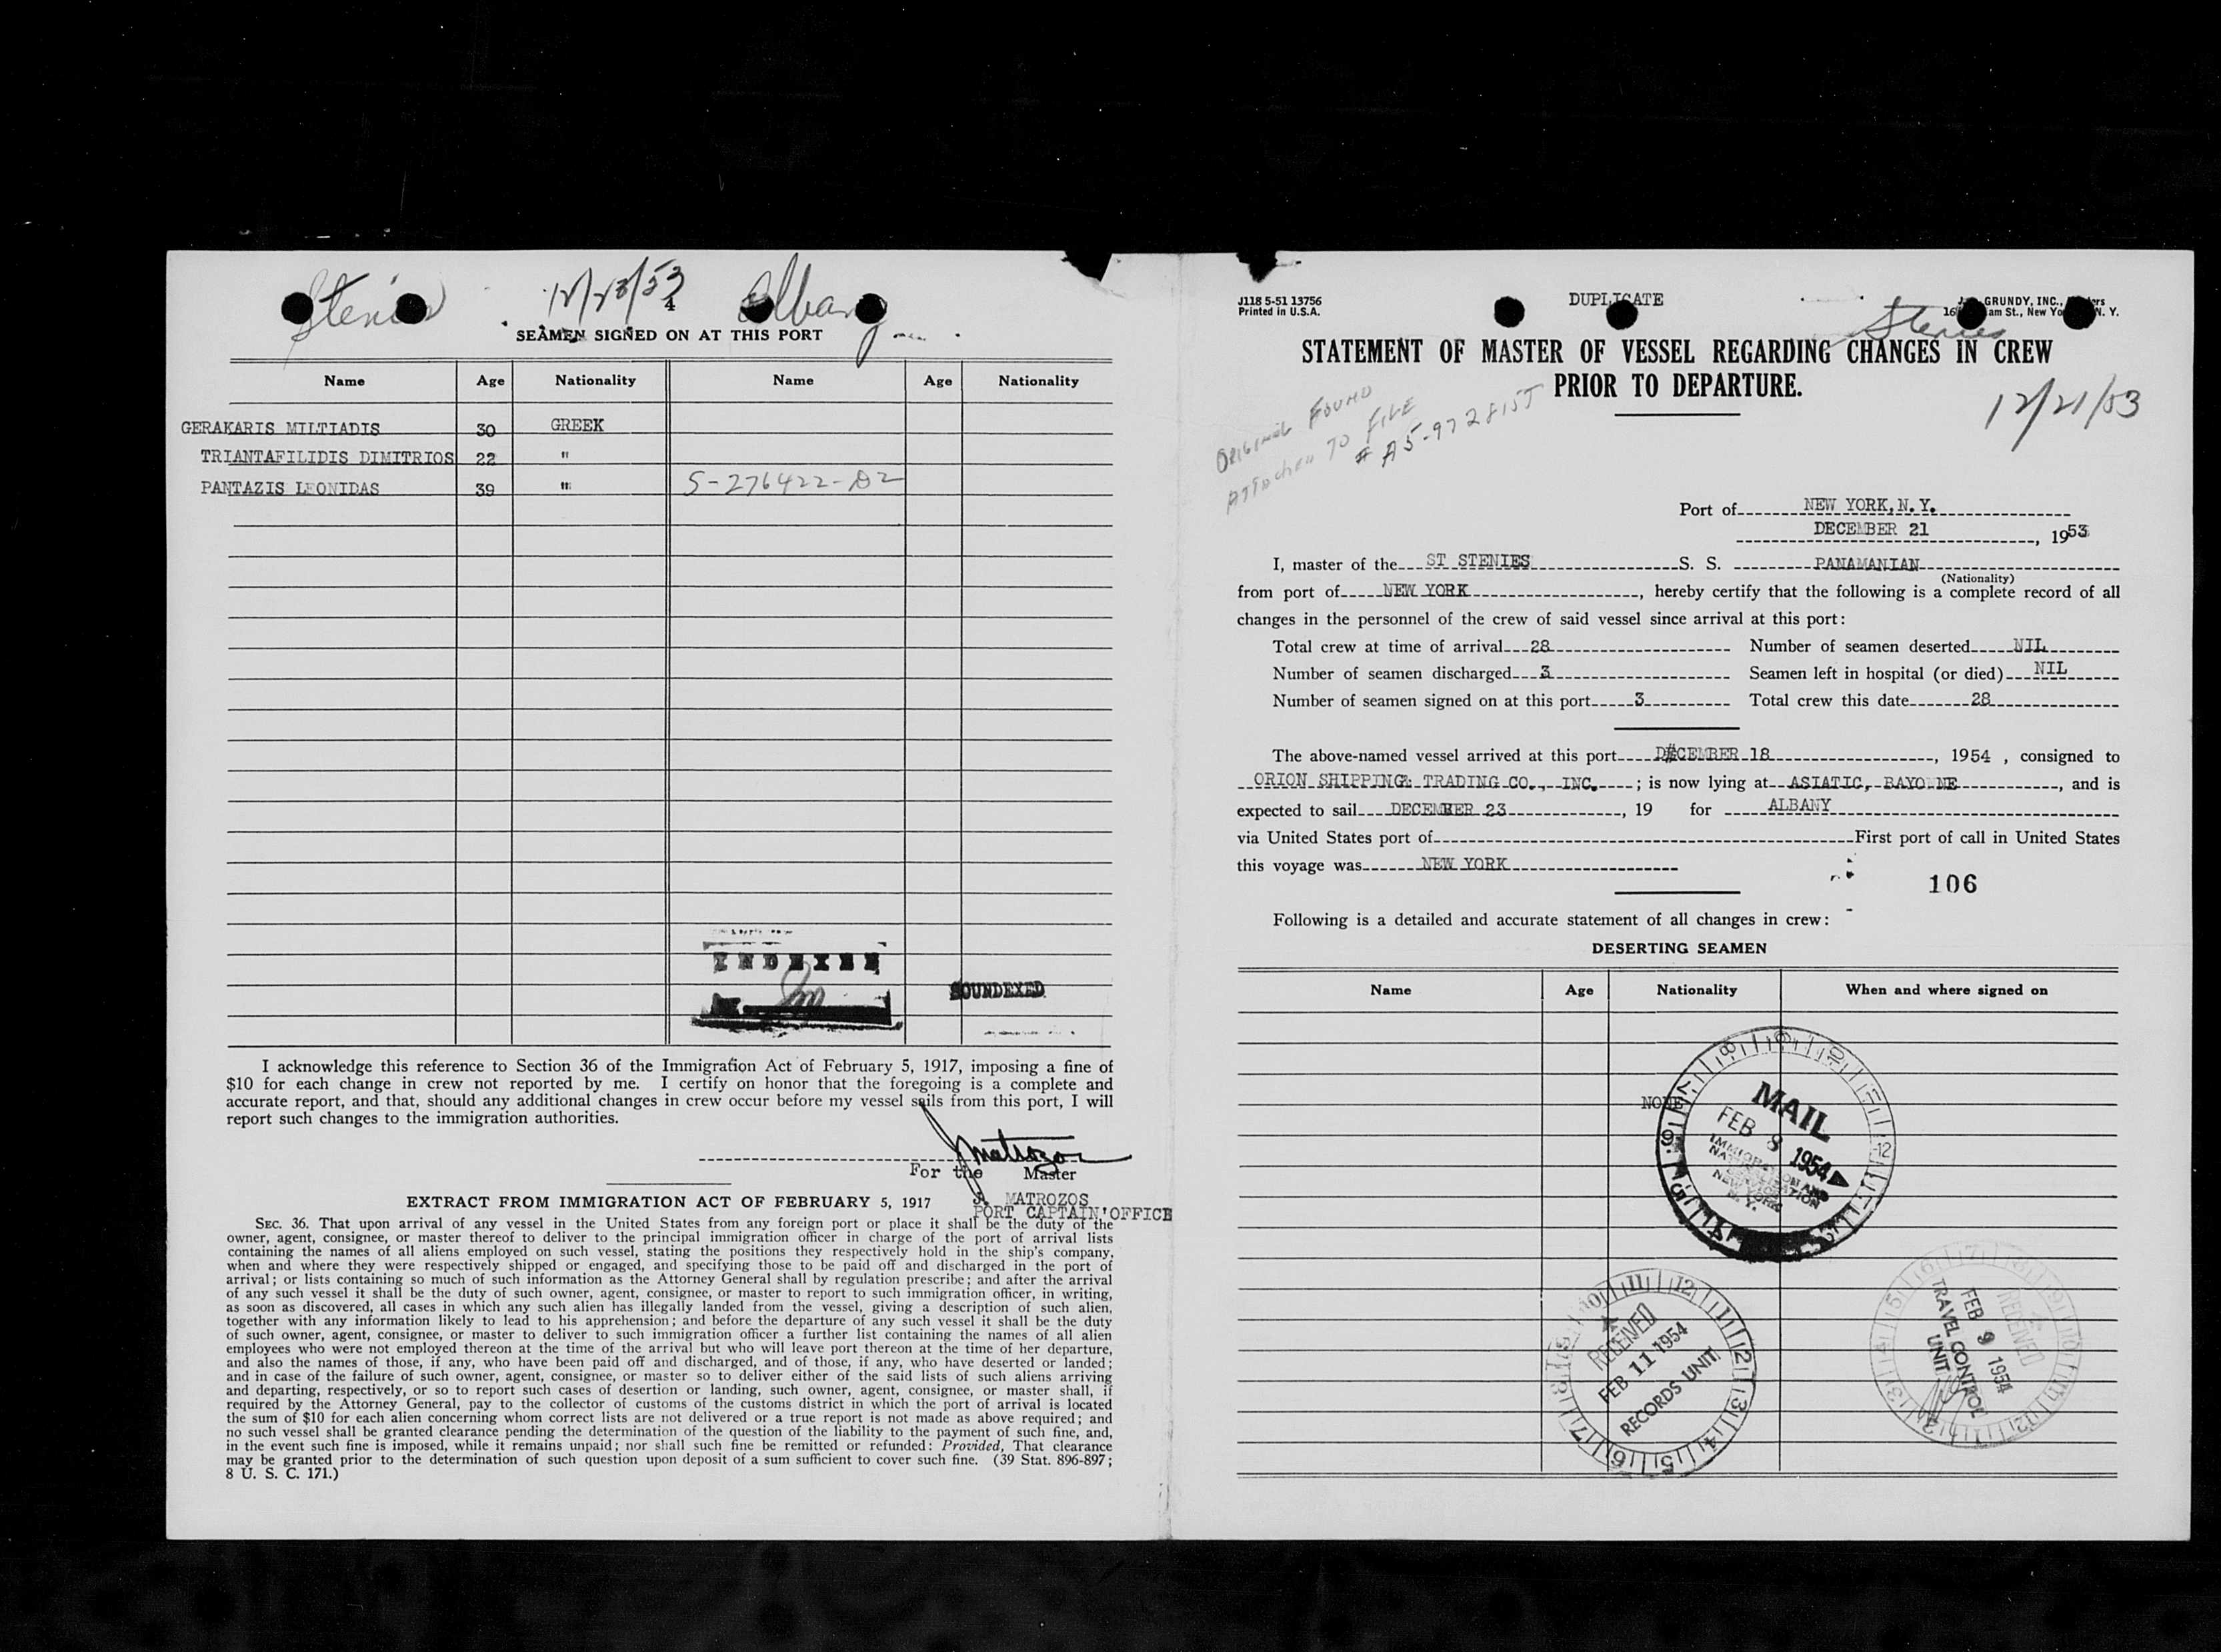 Stenies 12/23/53 Albany
4
SEAMEN SIGNED ON AT THIS PORT
Name Age Nationality Name Age Nationality
GERAKARIS MILTIADIS 30 GREEK
TRIANTAFILIDIS DIMITRIOS 22 "
PANTAZIS LEONIDAS 39 " S-276422-D2
INDEXED
SOUNDEXED
I acknowledge this reference to Section 36 of the Immigration Act of February 5, 1917, imposing a fine of
$10 for each change in crew not reported by me. I certify on honor that the foregoing is a complete and
accurate report, and that, should any additional changes in crew occur before my vessel sails from this port, I will
report such changes to the immigration authorities.
Matrozos
For the Master
MATROZOS
PORT CAPTAIN'OFFICE
EXTRACT FROM IMMIGRATION ACT OF FEBRUARY 5, 1917
SEC. 36. That upon arrival of any vessel in the United States from any foreign port or place it shall be the duty of the
owner, agent, consignee, or master thereof to deliver to the principal immigration officer in charge of the port of arrival lists
containing the names of all aliens employed on such vessel, stating the positions they respectively hold in the ship's company,
when and where they were respectively shipped or engaged, and specifying those to be paid off and discharged in the port of
arrival; or lists containing so much of such information as the Attorney General shall by regulation prescribe; and after the arrival
of any such vessel it shall be the duty of such owner, agent, consignee, or master to report to such immigration officer, in writing,
as soon as discovered, all cases in which any such alien has illegally landed from the vessel, giving a description of such alien,
together with any information likely to lead to his apprehension; and before the departure of any such vessel it shall be the duty
of such owner, agent, consignee, or master to deliver to such immigration officer a further list containing the names of all alien
employees who were not employed thereon at the time of the arrival but who will leave port thereon at the time of her departure,
and also the names of those, if any, who have been paid off and discharged, and of those, if any, who have deserted or landed;
and in case of the failure of such owner, agent, consignee, or master so to deliver either of the said lists of such aliens arriving
and departing, respectively, or so to report such cases of desertion or landing, such owner, agent, consignee, or master shall, if
required by the Attorney General, pay to the collector of customs of the customs district in which the port of arrival is located
the sum of $10 for each alien concerning whom correct lists are not delivered or a true report is not made as above required; and
no such vessel shall be granted clearance pending the determination of the question of the liability to the payment of such fine, and,
in the event such fine is imposed, while it remains unpaid; nor shall such fine be remitted or refunded: Provided, That clearance
may be granted prior to the determination of such question upon deposit of a sum sufficient to cover such fine. (39 Stat. 896-897;
8 U. S. C. 171.)
J118 5-51 13756
Printed in U.S.A.
DUPLICATE
GRUNDY, INC.,
am St., New Yo N. Y.
Stenies
STATEMENT OF MASTER OF VESSEL REGARDING CHANGES IN CREW
PRIOR TO DEPARTURE.
12/21/53
ORIGINAL FOUND
ATTACHED TO FILE
# A5-972815J
Port of NEW YORK, N.Y.
DECEMBER 21, 1953
I, master of the ST STENIES S. S. PANAMANIAN
(Nationality)
from port of NEW YORK, hereby certify that the following is a complete record of all
changes in the personnel of the crew of said vessel since arrival at this port:
Total crew at time of arrival 28 Number of seamen deserted NIL
Number of seamen discharged 3 Seamen left in hospital (or died) NIL
Number of seamen signed on at this port 3 Total crew this date 28
The above-named vessel arrived at this port DECEMBER 18, 1954 , consigned to
ORION SHIPPING& TRADING CO., INC. ; is now lying at ASIATIC, BAYONNE, and is
expected to sail DECEMBER 23, 19 for ALBANY
via United States port of First port of call in United States
this voyage was NEW YORK
106
Following is a detailed and accurate statement of all changes in crew:
DESERTING SEAMEN
Name Age Nationality When and where signed on
NONE
MAIL
FEB 8 1954
IMMIGRATION AND
NATURALIZATION
SERVICE
NEW YORK
N. Y.
RECEIVED
FEB 11 1954
RECORDS UNIT
RECEIVED
FEB 9 1954
TRAVEL CONTROL
UNIT